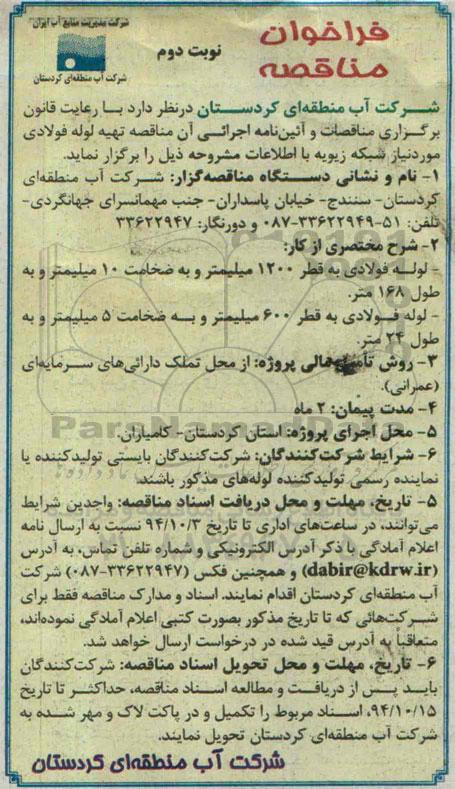 شرکت مدیریت منابع آب ایران
شرکت آب منطقه‌ای کردستان
نوبت دوم
فراخوان
مناقصه
شرکت آب منطقه‌ای کردستان درنظر دارد با رعایت قانون
برگزاری مناقصات و آئین‌نامه اجرائی آن مناقصه تهیه لوله فولادی
موردنیاز شبکه زیویه با اطلاعات مشروحه ذیل را برگزار نماید.
۱- نام و نشانی دستگاه مناقصه‌گزار: شرکت آب منطقه‌ای
کردستان- سنندج- خیابان پاسداران- جنب مهمانسرای جهانگردی-
تلفن: ۵۱-۳۳۶۲۲۹۴۹-۰۸۷ و دورنگار: ۳۳۶۲۲۹۴۷
۲- شرح مختصری از کار:
- لوله فولادی به قطر ۱۲۰۰ میلیمتر و به ضخامت ۱۰ میلیمتر و به
طول ۱۶۸ متر.
- لوله فولادی به قطر ۶۰۰ میلیمتر و به ضخامت ۵ میلیمتر و به
طول ۲۴ متر.
۳- روش تأمین مالی پروژه: از محل تملک دارائی‌های سرمایه‌ای
(عمرانی).
۴- مدت پیمان: ۲ ماه
۵- محل اجرای پروژه: استان کردستان- کامیاران.
۶- شرایط شرکت‌کنندگان: شرکت‌کنندگان بایستی تولیدکننده یا
نماینده رسمی تولیدکننده لوله‌های مذکور باشند.
۵- تاریخ، مهلت و محل دریافت اسناد مناقصه: واجدین شرایط
می‌توانند، در ساعت‌های اداری تا تاریخ ۹۴/۱۰/۳ نسبت به ارسال نامه
اعلام آمادگی با ذکر آدرس الکترونیکی و شماره تلفن تماس، به آدرس
(dabir@kdrw.ir) و همچنین فکس (۳۳۶۲۲۹۴۷-۰۸۷) شرکت
آب منطقه‌ای کردستان اقدام نمایند. اسناد و مدارک مناقصه فقط برای
شرکت‌هائی که تا تاریخ مذکور بصورت کتبی اعلام آمادگی نموده‌اند،
متعاقباً به آدرس قید شده در درخواست ارسال خواهد شد.
۶- تاریخ، مهلت و محل تحویل اسناد مناقصه: شرکت‌کنندگان
باید پس از دریافت و مطالعه اسناد مناقصه، حداکثر تا تاریخ
۹۴/۱۰/۱۵، اسناد مربوط را تکمیل و در پاکت لاک و مهر شده به
شرکت آب منطقه‌ای کردستان تحویل نمایند.
شرکت آب منطقه‌ای کردستان
ParsNamadData